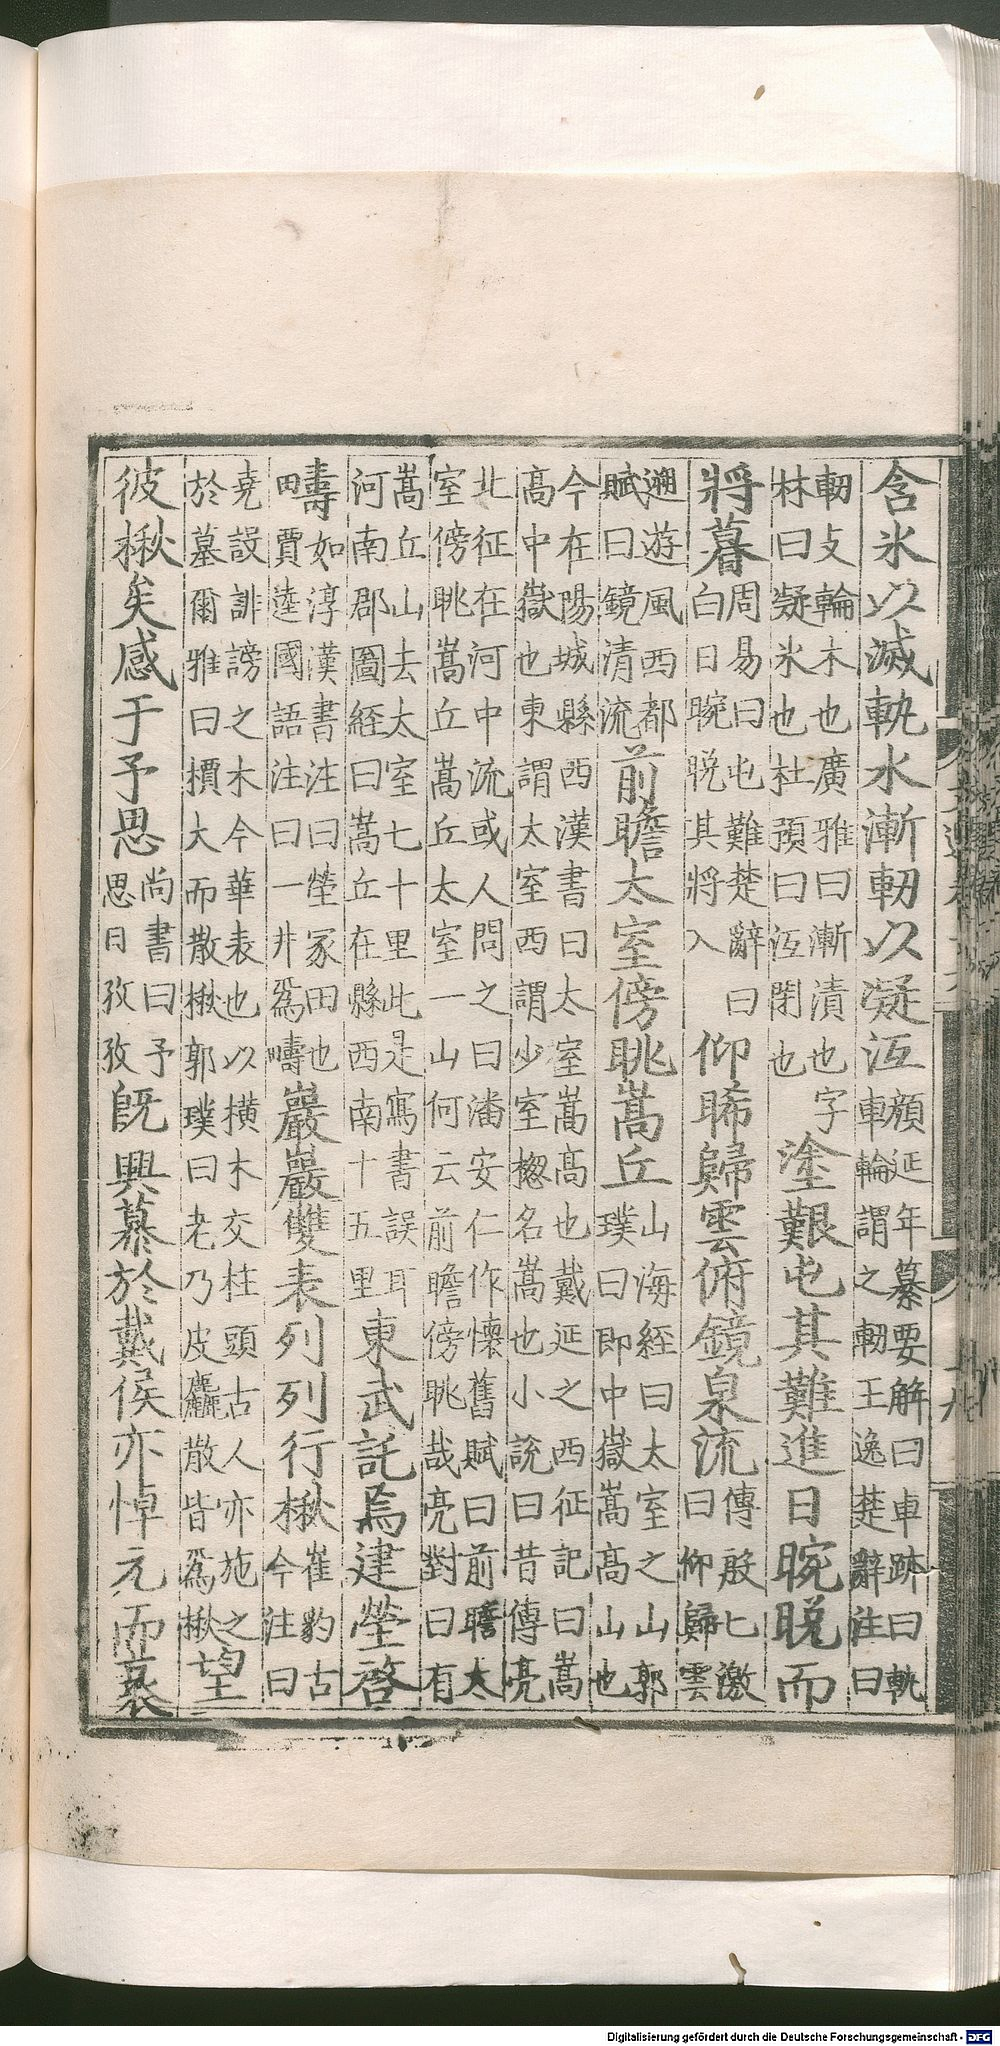 含冰以滅軌水漸軔以凝沍
顔延年纂要解曰車跡曰軌
車輪謂之軔王逸楚辭注曰
軔支輪木也廣雅曰漸漬也字
林曰凝冰也杜預曰沍閉也
塗艱屯其難進日晼晚而
將暮
周易曰屯難楚辭曰
白日晼晚其將入
仰睎歸雲俯鏡泉流
傅毅七激
曰仰歸雲
遡遊風西都
賦曰鏡清流
前瞻太室傍眺嵩丘
山海經曰太室之山郭
璞曰即中嶽嵩高山也
今在陽城縣西漢書曰太室嵩高也戴延之西征記曰嵩
高中嶽也東謂太室西謂少室揔名嵩也小說曰昔傅亮
北征在河中流或人問之曰潘安仁作懷舊賦曰前瞻太
室傍眺嵩丘嵩丘太室一山何云前瞻傍眺哉亮對曰有
嵩丘山去太室七十里此是寫書誤耳
河南郡圖経曰嵩丘在縣西南十五里
東武託焉建塋啓
疇
如淳漢書注曰塋冢田也
賈逵國語注曰一井爲疇
巖巖雙表列列行楸
崔豹古
今注曰
堯設誹謗之木今華表也以横木交柱頭古人亦施之
於墓爾雅曰櫝大而散楸郭璞曰老乃皮麤散皆爲楸
望
彼楸矣感于予思
尚書曰予
思日孜孜
旣興慕於戴侯亦悼元而哀
Digitalisierung gefördert durch die Deutsche Forschungsgemeinschaft - DFG